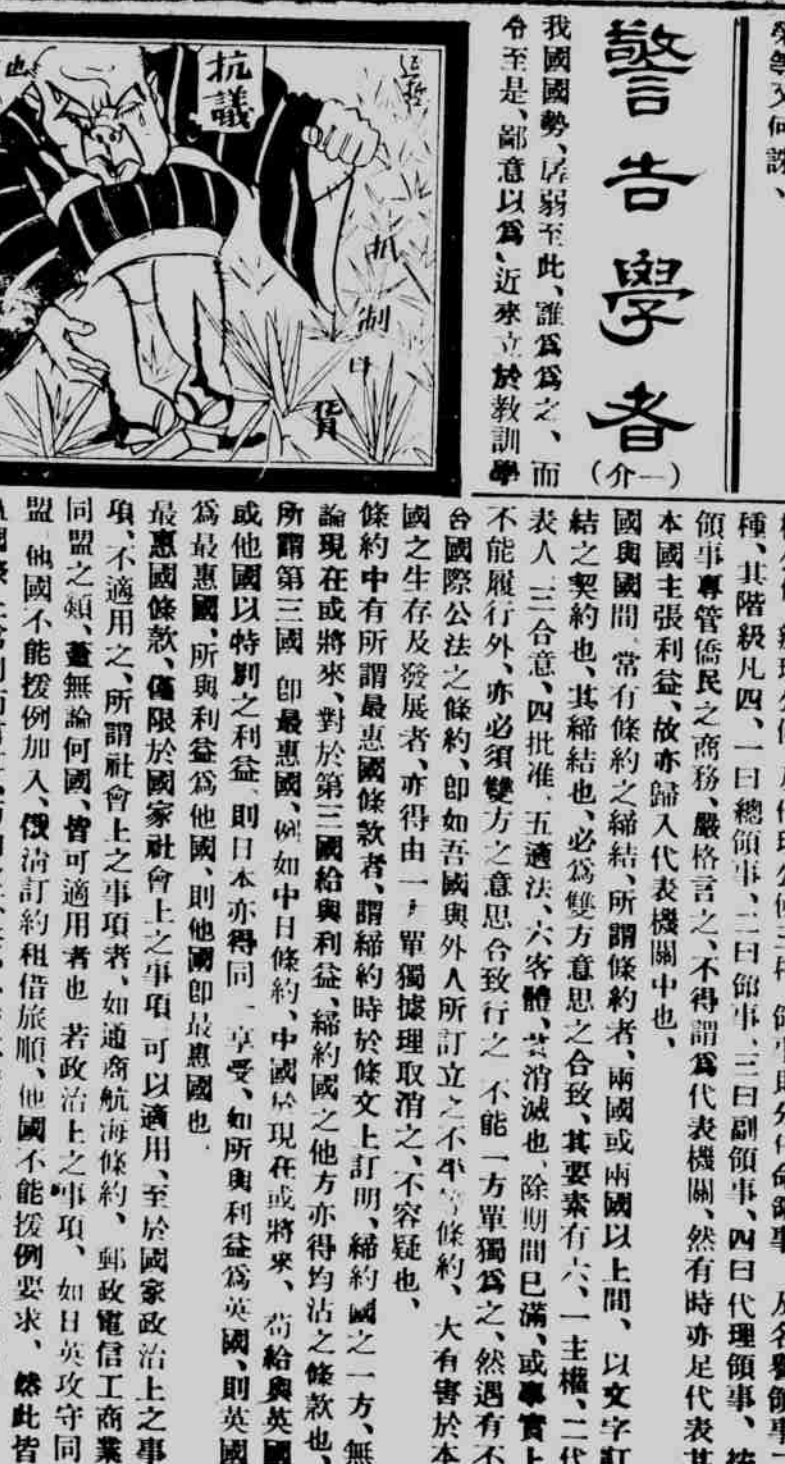 警告學者
(一介)
我國國勢、孱弱至此、誰爲爲之、而
令至是、鄙意以爲、近來立於教訓學
抗議
抵制日貨
種、其階級凡四、一曰總領事、二曰領事、三曰副領事、四曰代理領事、按
領事專管僑民之商務、嚴格言之、不得謂爲代表機關、然有時亦足代表其
本國主張利益、故亦歸入代表機關中也、
國與國間、常有條約之締結、所謂條約者、兩國或兩國以上間、以文字訂
結之契約也、其締結也、必爲雙方意思之合致、其要素有六、一主權、二代
表人、三合意、四批准、五適法、六客體、若消滅也、除期間已滿、或事實上
不能履行外、亦必須雙方之意思合致行之、不能一方單獨爲之、然遇有不
合國際公法之條約、即如吾國與外人所訂立之不平等條約、大有害於本
國之生存及發展者、亦得由一方單獨據理取消之、不容疑也、
條約中有所謂最惠國條款者、謂締約時於條文上訂明、締約國之一方、無
論現在或將來、對於第三國給與利益、締約國之他方亦得均沾之條款也、
所謂第三國、即最惠國、例如中日條約、中國於現在或將來、苟給與英國
或他國以特別之利益、則日本亦得同一享受、如所與利益爲英國、則英國
爲最惠國、所與利益爲他國、則他國即最惠國也、
最惠國條款、僅限於國家社會上之事項、可以適用、至於國家政治上之事
項、不適用之、所謂社會上之事項者、如通商航海條約、郵政電信工商業
同盟之類、蓋無論何國、皆可適用者也、若政治上之事項、如日英攻守同
盟、他國不能援例加入、俄淸訂約租借旅順、他國不能援例要求、然此皆